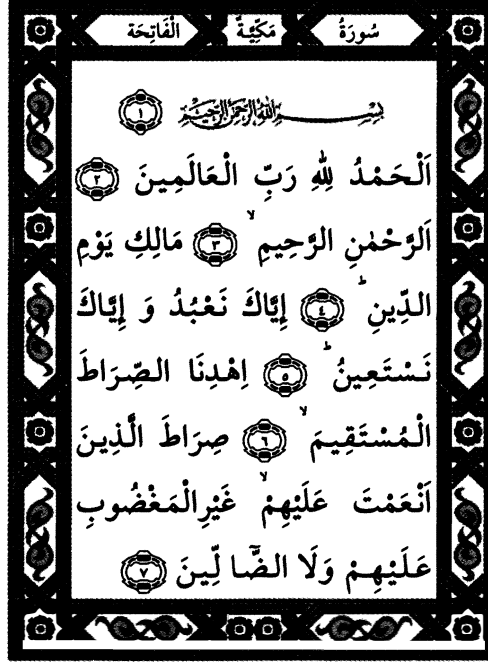 سُورَةُ مَكِّيَّةٌ الْفَاتِحَة
بِسْمِ اللهِ الرَّحْمٰنِ الرَّحِيْمِ ۝١
اَلْحَمْدُ لِلّٰهِ رَبِّ الْعَالَمِينَ ۝٢
اَلرَّحْمٰنِ الرَّحِيمِ ۙ ۝٣ مَالِكِ يَوْمِ
الدِّينِ ؕ ۝٤ إِيَّاكَ نَعْبُدُ وَ إِيَّاكَ
نَسْتَعِينُ ؕ ۝٥ اِهْدِنَا الصِّرَاطَ
الْمُسْتَقِيمَ ۙ ۝٦ صِرَاطَ الَّذِينَ
اَنْعَمْتَ عَلَيْهِمْ ۙ غَيْرِ الْمَغْضُوبِ
عَلَيْهِمْ وَلَا الضَّآ لِّينَ ۝٧